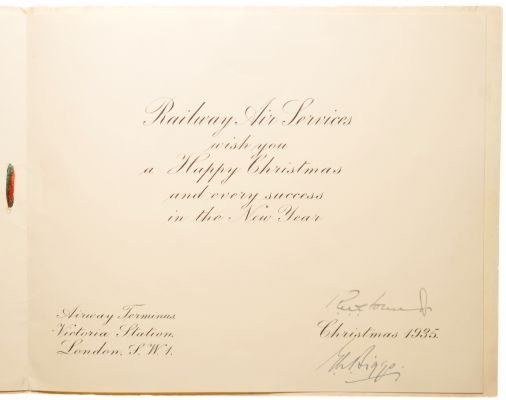 Railway Air Services
wish you
a Happy Christmas
and every success
in the New Year
Airway Terminus,
Victoria Station,
London, S.W.1.
Christmas 1935.